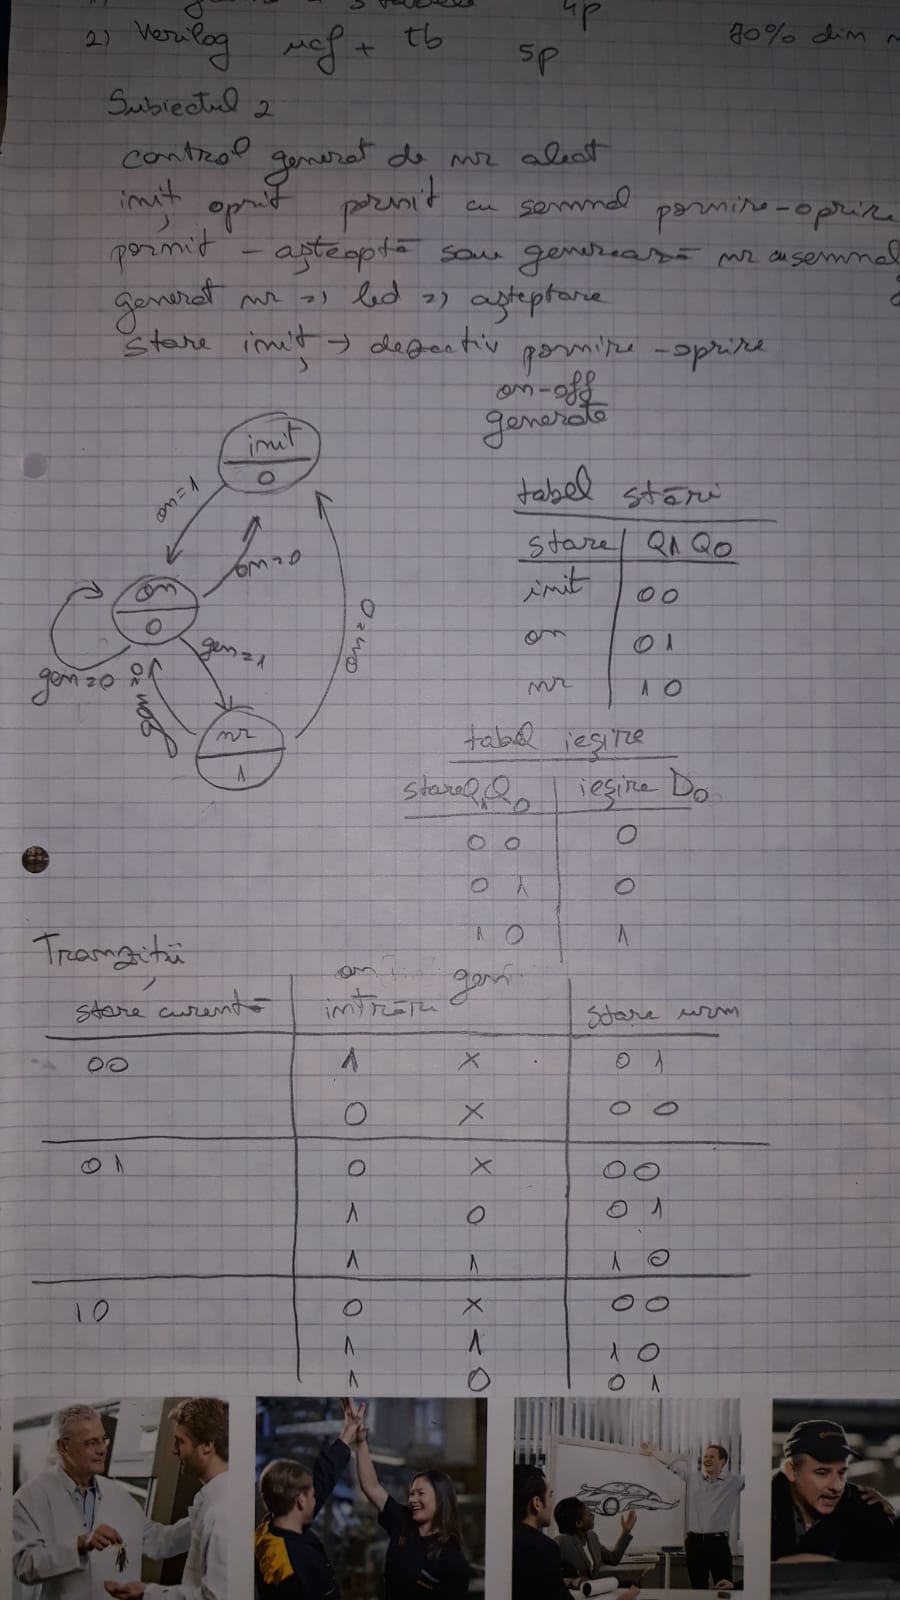 2) Verilog ucf + tb 5p 70% din
4p
Subiectul 2
control generat de nr aleat
iniț, oprit pornit cu semnal pornire-oprire
pornit - așteaptă sau generează nr cu semnal
generat nr => led => așteptare
stare iniț -> dezactiv pornire-oprire
on-off
generate
init
0
on=1
on=0
on
0
gen=1
gen=0
gen=0
on=0
nr
1
tabel stări
stare Q1 Q0
init 00
on 01
nr 10
tabel ieșire
stare Q1 Q0 ieșire D0
0 0 0
0 1 0
1 0 1
Tranziții
on gen
stare curentă intrări stare urm
00 1 x 0 1
0 x 0 0
01 0 x 00
1 0 0 1
1 1 1 0
10 0 x 00
1 1 1 0
1 0 0 1